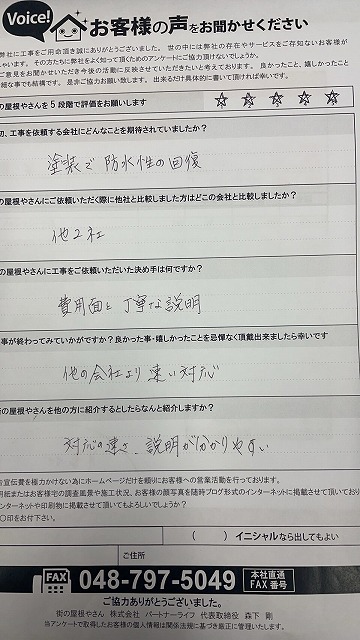 Voice!
お客様の声をお聞かせください
弊社に工事をご用命頂き誠にありがとうございました。世の中には弊社の存在やサービスをご存知ないお客様が
しゃいます。その方たちに弊社をよく知って頂くためのアンケートにご協力頂けないでしょうか。
ご意見をお聞かせいただき今後の活動に反映させていただきたいと考えております。良かったこと、嬉しかったこと
細な事でも結構です。是非ご協力お願い致します。出来るだけ具体的に書いて頂ければ幸いです。
の屋根やさんを5段階で評価をお願いします
☆ ☆ ☆ ☆ ☆
初、工事を依頼する会社にどんなことを期待されていましたか?
塗装で防水性の回復
の屋根やさんにご依頼いただく際に他社と比較しました方はどこの会社と比較しましたか?
他2社
の屋根やさんに工事をご依頼いただいた決め手は何ですか?
費用面と丁寧な説明
事が終わってみていかがですか?良かった事・嬉しかったことを忌憚なく頂戴出来ましたら幸いです
他の会社より速い対応
街の屋根やさんを他の方に紹介するとしたらなんと紹介しますか?
対応の速さ、説明が分かりやすい
告宣伝費を極力かけない為にホームページだけを頼りにお客様への営業活動を行っております。
用紙またはお客様宅の調査風景や施工状況、お客様の顔写真を随時ブログ形式のインターネットに掲載させて頂いており
ンターネットや印刷物に掲載させて頂いてもよろしいでしょうか?
○印をお付下さい。
( )イニシャルなら出してもよい
ご住所
FAX
048-797-5049
本社直通
FAX番号
ご協力ありがとうございました。
街の屋根やさん 株式会社 パートナーライフ 代表取締役 森下 剛
当アンケートで取得したお客様の個人情報は関係法規に基づき厳正に管理いたします。